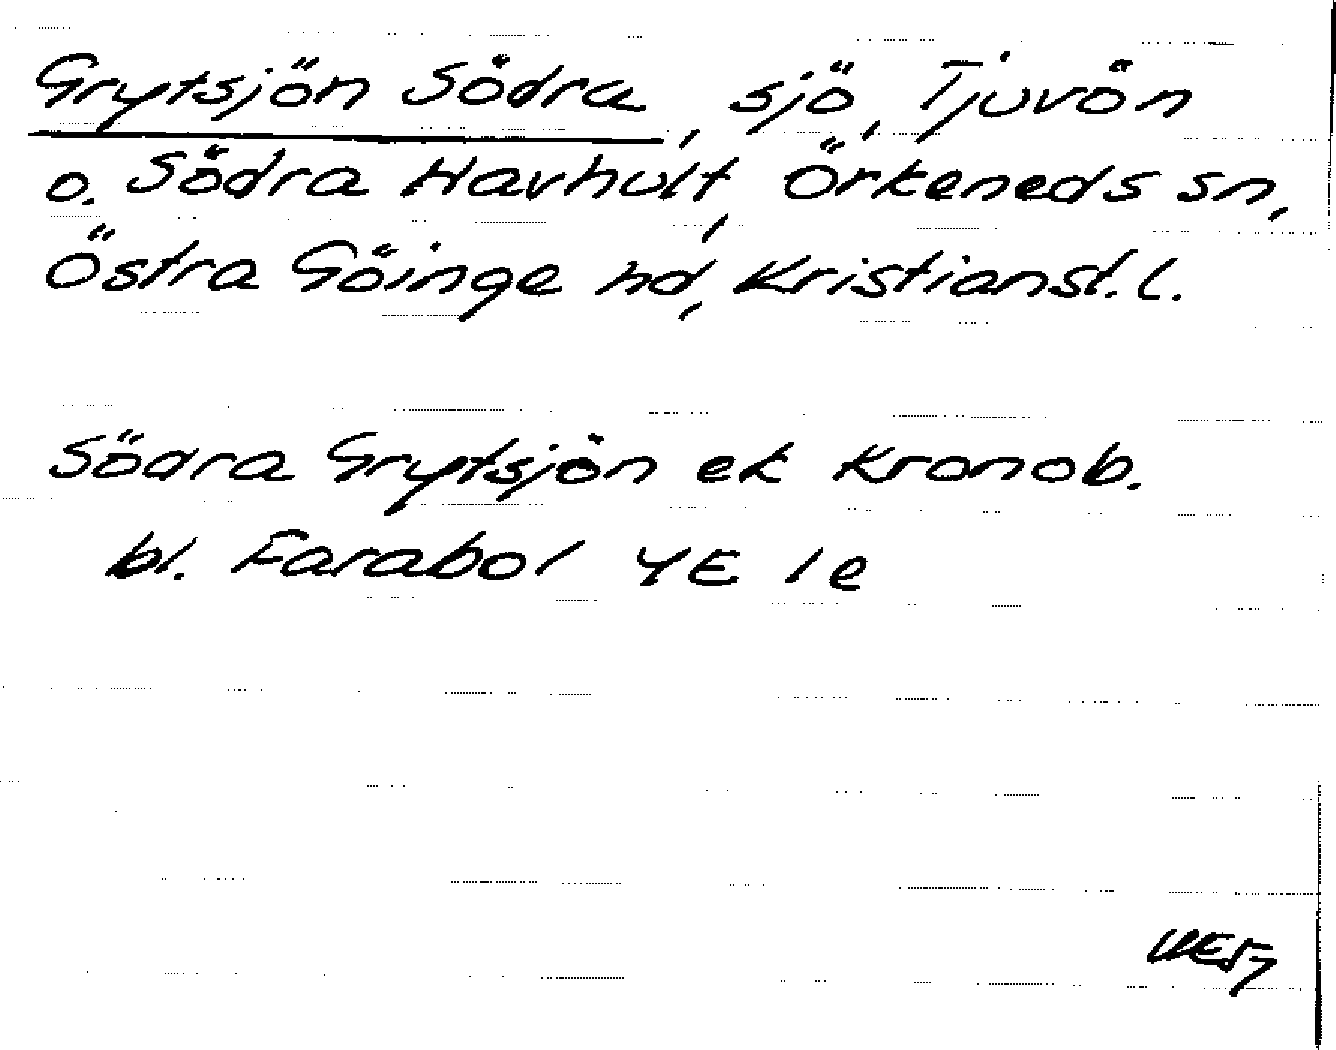 Grytsjön Södra, sjö, Tjuvön
o. Södra Havhult, Örkeneds sn,
Östra Göinge hd, Kristianst. l.
Södra Grytsjön ek Kronob.
bl. Farabol 4E 1e